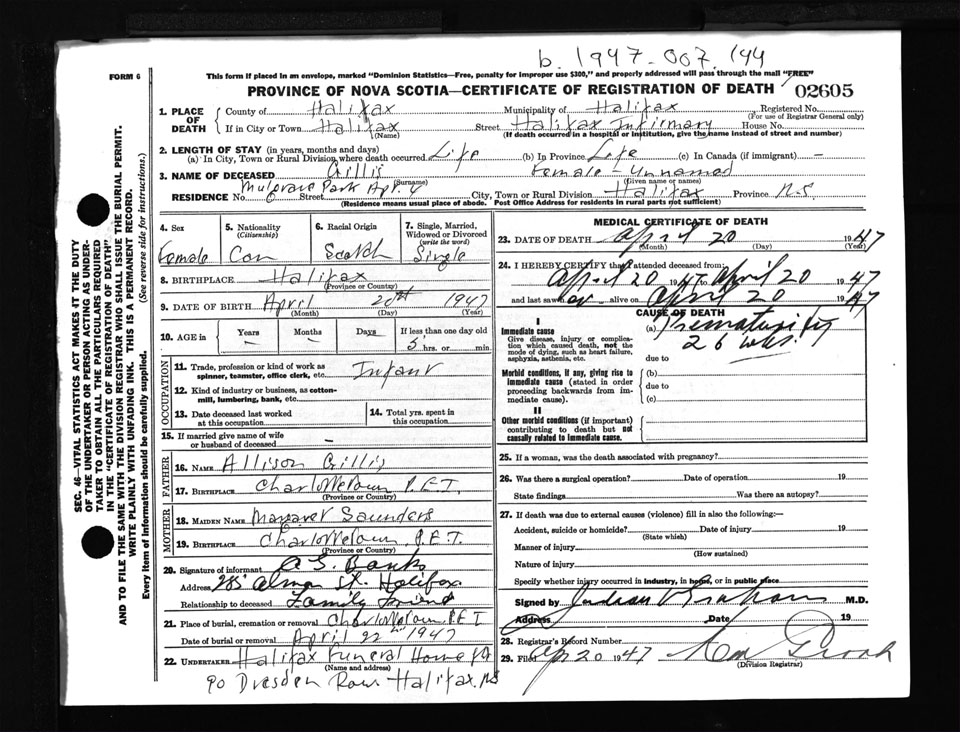 b. 1947-007.144
FORM 6
This form if placed in an envelope, marked "Dominion Statistics—Free, penalty for improper use $300," and properly addressed will pass through the mail "FREE"
PROVINCE OF NOVA SCOTIA—CERTIFICATE OF REGISTRATION OF DEATH
02605
1. PLACE OF DEATH
County of Halifax Municipality of Halifax Registered No.
(For use of Registrar General only)
If in City or Town Halifax Street Halifax Infirmary House No.
(Name) (If death occurred in a hospital or institution, give the name instead of street and number)
2. LENGTH OF STAY (in years, months and days)
(a) In City, Town or Rural Division where death occurred Life (b) In Province Life (c) In Canada (if immigrant) —
3. NAME OF DECEASED Gillis Female - Unnamed
(Surname) (Given name or names)
RESIDENCE No. Street Mulgrave Park Apt. 4 City, Town or Rural Division Halifax Province N.S.
(Residence means usual place of abode. Post Office Address for residents in rural parts not sufficient)
4. Sex Female
5. Nationality (Citizenship) Can
6. Racial Origin Scotch
7. Single, Married, Widowed or Divorced (write the word) Single
8. BIRTHPLACE Halifax
(Province or Country)
9. DATE OF BIRTH April 20st 1947
(Month) (Day) (Year)
10. AGE in Years — Months — Days — If less than one day old 5 hrs. or min.
OCCUPATION
11. Trade, profession or kind of work as spinner, teamster, office clerk, etc. Infant
12. Kind of industry or business, as cotton-mill, lumbering, bank, etc.
13. Date deceased last worked at this occupation
14. Total yrs. spent in this occupation
15. If married give name of wife or husband of deceased —
FATHER
16. NAME Allison Gillis
17. BIRTHPLACE Charlottetown P.E.I.
(Province or Country)
MOTHER
18. MAIDEN NAME Margaret Saunders
19. BIRTHPLACE Charlottetown, P.E.I.
(Province or Country)
20. Signature of informant A S. Banks
Address 285 Almon St. Halifax
Relationship to deceased Family friend
21. Place of burial, cremation or removal Charlottetown, P.E.I
Date of burial or removal April 22nd 1947
22. UNDERTAKER Halifax Funeral Home
(Name and address)
90 Dresden Row Halifax NS
MEDICAL CERTIFICATE OF DEATH
23. DATE OF DEATH April 20 1947
(Month) (Day) (Year)
24. I HEREBY CERTIFY that I attended deceased from:
April 20 1947 to April 20 1947
and last saw her alive on April 20 1947
CAUSE OF DEATH
I
Immediate cause
Give disease, injury or complication which caused death, not the mode of dying, such as heart failure, asphyxia, asthenia, etc.
(a) Prematurity
26 wks.
due to
Morbid conditions, if any, giving rise to immediate cause (stated in order proceeding backwards from immediate cause).
(b)
due to
(c)
II
Other morbid conditions (if important) contributing to death but not causally related to immediate cause.
25. If a woman, was the death associated with pregnancy?
26. Was there a surgical operation? Date of operation 19
State findings Was there an autopsy?
27. If death was due to external causes (violence) fill in also the following:—
Accident, suicide or homicide? Date of injury 19
(State which)
Manner of injury
(How sustained)
Nature of injury
Specify whether injury occurred in industry, in home, or in public place
Signed by Judson V Graham M.D.
Address Date 19
28. Registrar's Record Number
29. Filed Ap 20 1947
(Division Registrar)
SEC. 46—VITAL STATISTICS ACT MAKES IT THE DUTY
OF THE UNDERTAKER OR PERSON ACTING AS UNDER-
TAKER TO OBTAIN ALL THE PARTICULARS REQUIRED
IN THE "CERTIFICATE OF REGISTRATION OF DEATH"
AND TO FILE THE SAME WITH THE DIVISION REGISTRAR WHO SHALL ISSUE THE BURIAL PERMIT.
WRITE PLAINLY WITH UNFADING INK. THIS IS A PERMANENT RECORD.
Every item of Information should be carefully supplied. (See reverse side for instructions.)